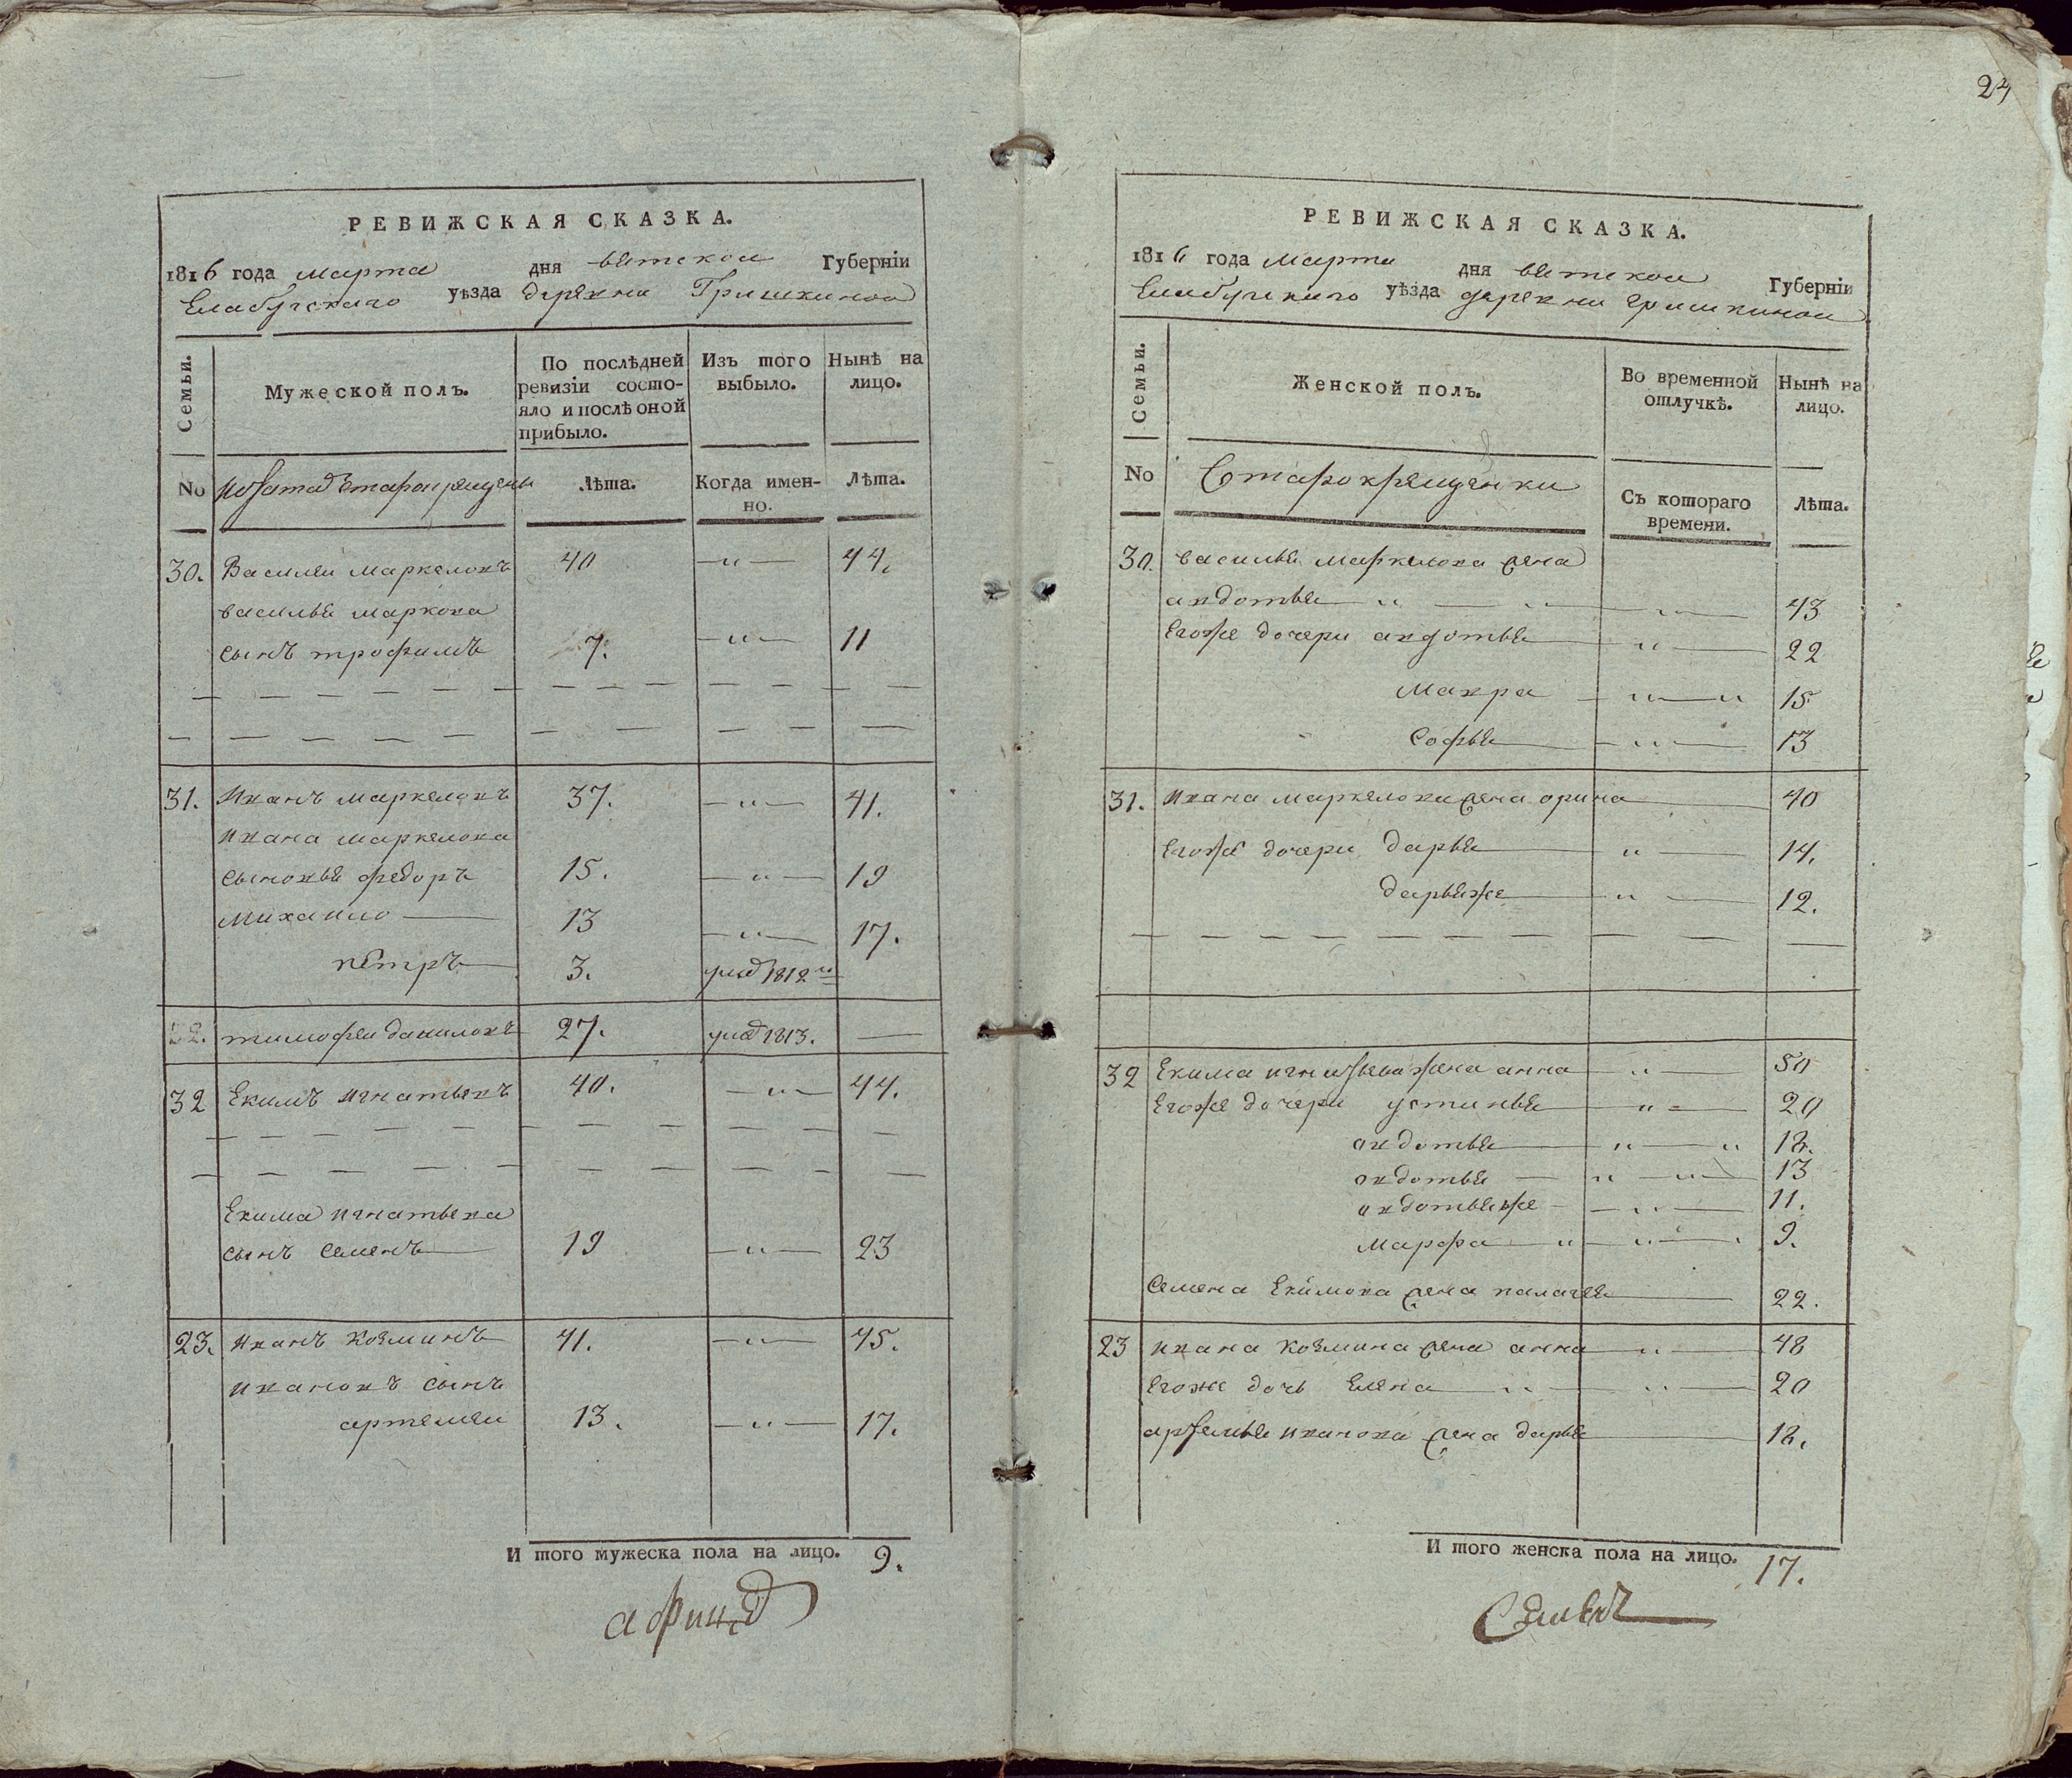 РЕВИЖСКАЯ СКАЗКА.
1816 года марта дня вятской Губернїи
Елабугскаго уѣзда деревни Гришкиной
Семьи.
Мужеской полъ.
По послѣдней ревизїи состояло и послѣ оной прибыло.
Изъ того выбыло.
Нынѣ на лицо.
No
Лѣта.
Когда именно.
Лѣта.
30. Василеи маркеловъ 40 44.
василья маркова
сынъ трофимъ 7. 11
31. Иванъ маркеловъ 37. 41.
ивана маркелова
сыновья федоръ 15. 19
михаило 13 17.
петръ 3. 1812
тимофеи даниловъ 27. 1813.
32 Екимъ игнатьевъ 40. 44.
Екима игнатьева
сынъ семенъ 19 23
23. иванъ козминъ 41. 45.
ивановъ сынъ
артемеи 13. 17.
И того мужеска пола на лицо. 9.
24
РЕВИЖСКАЯ СКАЗКА.
1816 года марта дня вятской Губернїи
Елабугскаго уѣзда деревни гришкиной
Семьи.
Женской полъ.
Во временной отлучкѣ.
Нынѣ на лицо.
No
Старокрещенки
Съ котораго времени.
Лѣта.
30. василья маркелова жена
авдотья 43
Егоже дочери авдотья 22
мавра 15
софья 13
31. ивана маркелова жена орина 40
Егоже дочери дарья 14.
дарьяже 12.
32 Екима игнатьева жена анна 50
Егоже дочери устинья 20
авдотья 18.
авдотья 13
авдотьяже 11.
марфа 9.
семена Екимова жена палагея 22.
23 ивана козмина жена анна 48
Егоже дочь Елена 20
артемья иванова жена дарья 18.
И того женска пола на лицо. 17.